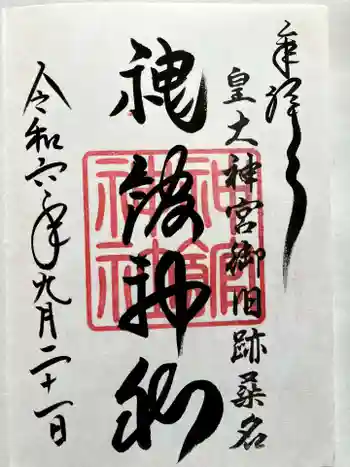 奉拝
皇大神宮御旧跡桑名
神館神社
令和六年九月二十一日
神館神社